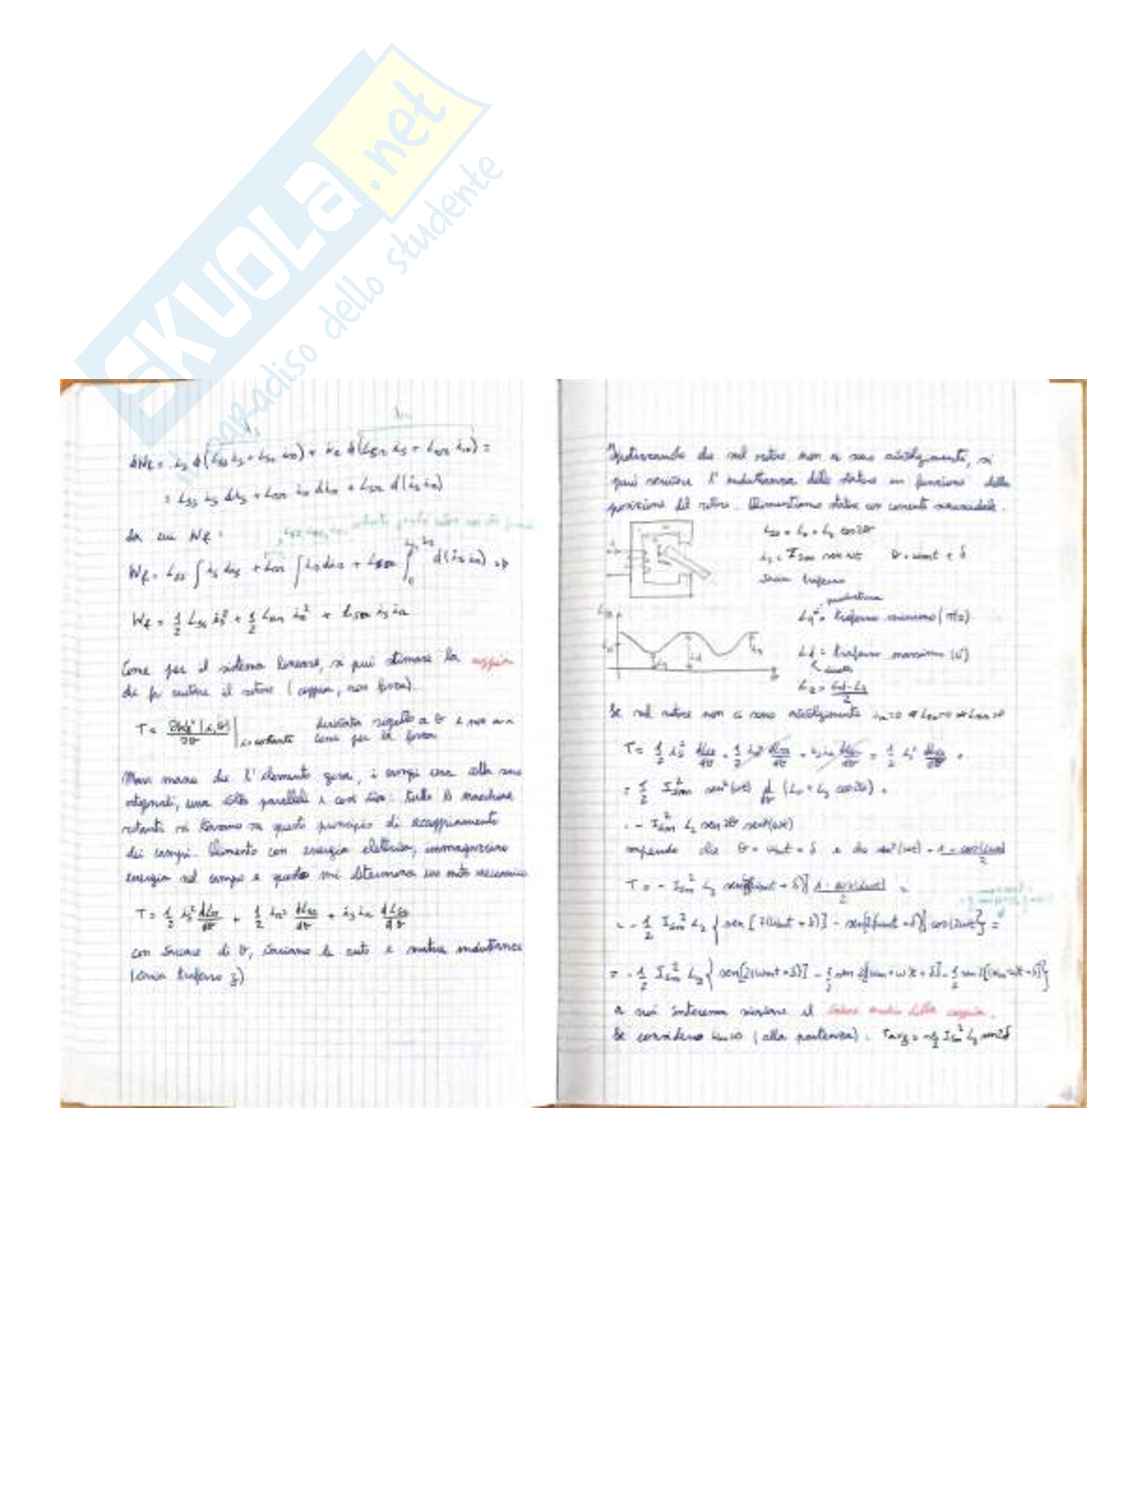 SKUOLA.net
paradiso dello studente
dWf = is d(Lss is + Lsr ir) + ir d(Lsr is + Lrr ir) =
= Lss is dis + Lrr ir dir + Lsr d(is ir)
da cui Wf:
Wf = Lss ∫ is dis + Lrr ∫ ir dir + Lsr ∫ d(is ir) =>
Wf = 1/2 Lss is² + 1/2 Lrr ir² + Lsr is ir
Come per il sistema lineare, si può stimare la coppia
che fa ruotare il rotore (coppia, non forza).
T = ∂Wf'(i,θ)/∂θ | i costante derivata rispetto a θ e non a x
come per la forza
Man mano che l'elemento gira, i campi una volta sono
ortogonali, una volta paralleli e così via: tutte le macchine
rotanti si basano su questo principio di accoppiamento
dei campi. Alimento con energia elettrica, immagazzino
energia nel campo e questo mi determina un moto meccanico
T = 1/2 is² dLss/dθ + 1/2 ir² dLrr/dθ + is ir dLsr/dθ
con variare di θ, variano le auto e mutue induttanze
(varia traferro g)
Ipotizzando che sul rotore non ci sono avvolgimenti, si
può scrivere l'induttanza dello statore in funzione della
posizione del rotore. Alimentiamo statore con corrente sinusoidale.
Lss = L0 + L2 cos2θ
is = Ism sen ωt θ = ωmt + δ
varia traferro
quadratura
Lq = traferro massimo (π/2)
Ld = traferro minimo (0)
diretta
L2 = Ld-Lq/2
Se sul rotore non ci sono avvolgimenti ir=0 Lsr=0 Lrr=0
T = 1/2 is² dLss/dθ + 1/2 ir² dLrr/dθ + is ir dLsr/dθ = 1/2 is² dLss/dθ =
= 1/2 Ism² sen²(ωt) d/dθ (L0 + L2 cos2θ) =
= - Ism² L2 sen2θ sen²(ωt)
sapendo che θ = ωmt + δ e che sen²(ωt) = 1 - cos(2ωt)/2
T = - Ism² L2 sen[2(ωmt + δ)] [1 - cos(2ωt)]/2 =
= - 1/2 Ism² L2 { sen[2(ωmt + δ)] - sen[2(ωmt + δ)] cos(2ωt)} =
= - 1/2 Ism² L2 { sen[2(ωmt + δ)] - 1/2 sen 2[(ωm + ω)t + δ] - 1/2 sen 2[(ωm - ω)t + δ]}
a noi interessa sapere il valore medio della coppia.
Se considero ωm=0 (alla partenza): Tavg = -1/2 Ism² L2 sen2δ